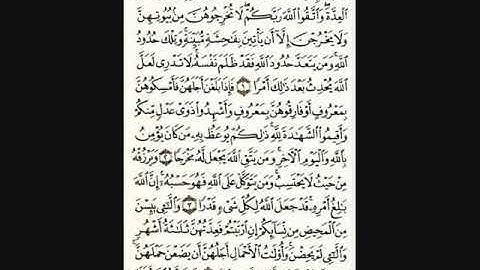 ٱلْعِدَّةَ ۖ وَٱتَّقُوا۟ ٱللَّهَ رَبَّكُمْ ۖ لَا تُخْرِجُوهُنَّ مِنۢ بُيُوتِهِنَّ
وَلَا يَخْرُجْنَ إِلَّآ أَن يَأْتِينَ بِفَٰحِشَةٍ مُّبَيِّنَةٍ ۚ وَتِلْكَ حُدُودُ
ٱللَّهِ ۚ وَمَن يَتَعَدَّ حُدُودَ ٱللَّهِ فَقَدْ ظَلَمَ نَفْسَهُۥ ۚ لَا تَدْرِى لَعَلَّ
ٱللَّهَ يُحْدِثُ بَعْدَ ذَٰلِكَ أَمْرًا ۝١ فَإِذَا بَلَغْنَ أَجَلَهُنَّ فَأَمْسِكُوهُنَّ
بِمَعْرُوفٍ أَوْ فَارِقُوهُنَّ بِمَعْرُوفٍ وَأَشْهِدُوا۟ ذَوَىْ عَدْلٍ مِّنكُمْ
وَأَقِيمُوا۟ ٱلشَّهَٰدَةَ لِلَّهِ ۚ ذَٰلِكُمْ يُوعَظُ بِهِۦ مَن كَانَ يُؤْمِنُ
بِٱللَّهِ وَٱلْيَوْمِ ٱلْءَاخِرِ ۚ وَمَن يَتَّقِ ٱللَّهَ يَجْعَل لَّهُۥ مَخْرَجًا ۝٢ وَيَرْزُقْهُ
مِنْ حَيْثُ لَا يَحْتَسِبُ ۚ وَمَن يَتَوَكَّلْ عَلَى ٱللَّهِ فَهُوَ حَسْبُهُۥٓ ۚ إِنَّ ٱللَّهَ
بَٰلِغُ أَمْرِهِۦ ۚ قَدْ جَعَلَ ٱللَّهُ لِكُلِّ شَىْءٍ قَدْرًا ۝٣ وَٱلَّٰٓـِٔى يَئِسْنَ
مِنَ ٱلْمَحِيضِ مِن نِّسَآئِكُمْ إِنِ ٱرْتَبْتُمْ فَعِدَّتُهُنَّ ثَلَٰثَةُ أَشْهُرٍ
وَٱلَّٰٓـِٔى لَمْ يَحِضْنَ ۚ وَأُو۟لَٰتُ ٱلْأَحْمَالِ أَجَلُهُنَّ أَن يَضَعْنَ حَمْلَهُنَّ ۚ